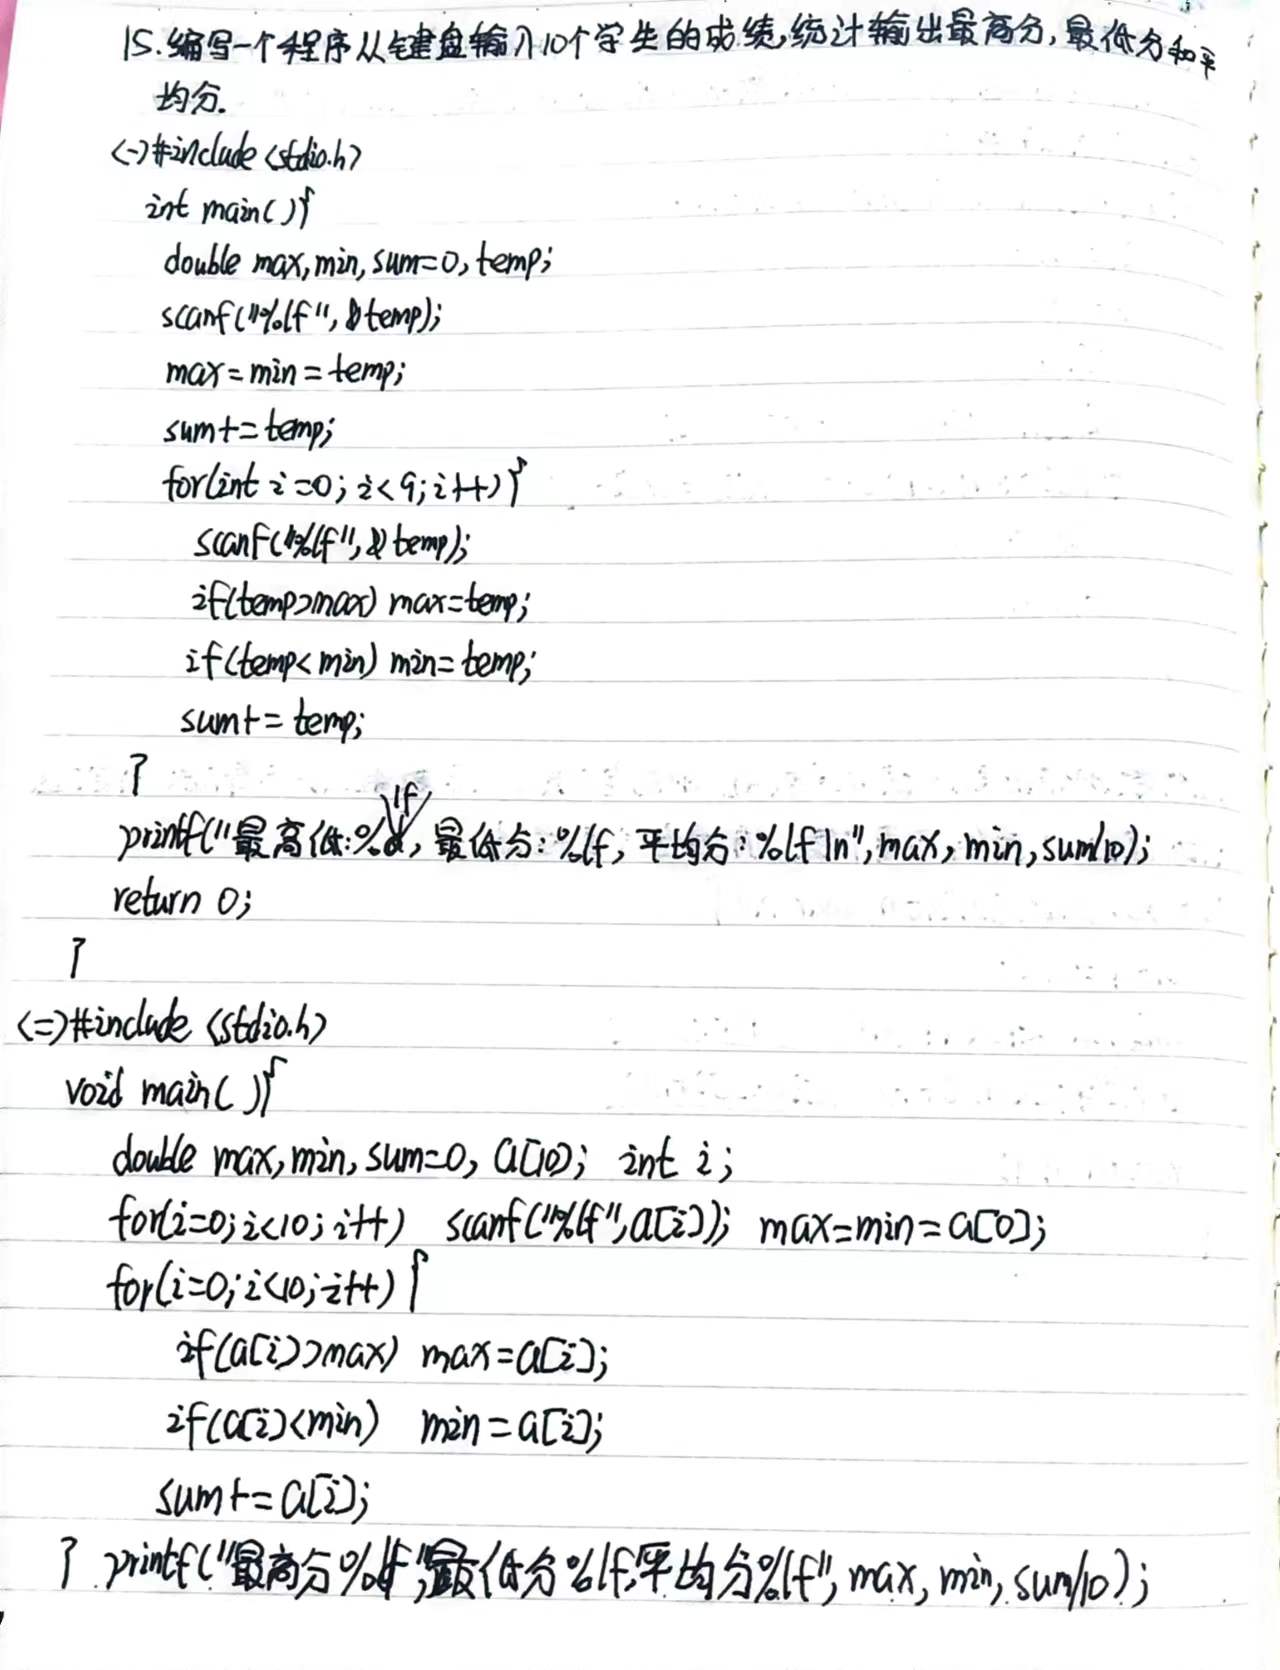 15.编写一个程序从键盘输入10个学生的成绩,统计输出最高分,最低分和平
均分.
<一>#include <stdio.h>
int main(){
double max,min,sum=0,temp;
scanf("%lf",&temp);
max=min=temp;
sum+=temp;
for(int i=0;i<9;i++){
scanf("%lf",&temp);
if(temp>max) max=temp;
if(temp<min) min=temp;
sum+=temp;
}
printf("最高低:%lf,最低分:%lf,平均分:%lf\n",max,min,sum/10);
return 0;
}
<二>#include <stdio.h>
void main(){
double max,min,sum=0,a[10]; int i;
for(i=0;i<10;i++) scanf("%lf",a[i]); max=min=a[0];
for(i=0;i<10;i++){
if(a[i]>max) max=a[i];
if(a[i]<min) min=a[i];
sum+=a[i];
} printf("最高分%lf,最低分%lf,平均分%lf",max,min,sum/10);